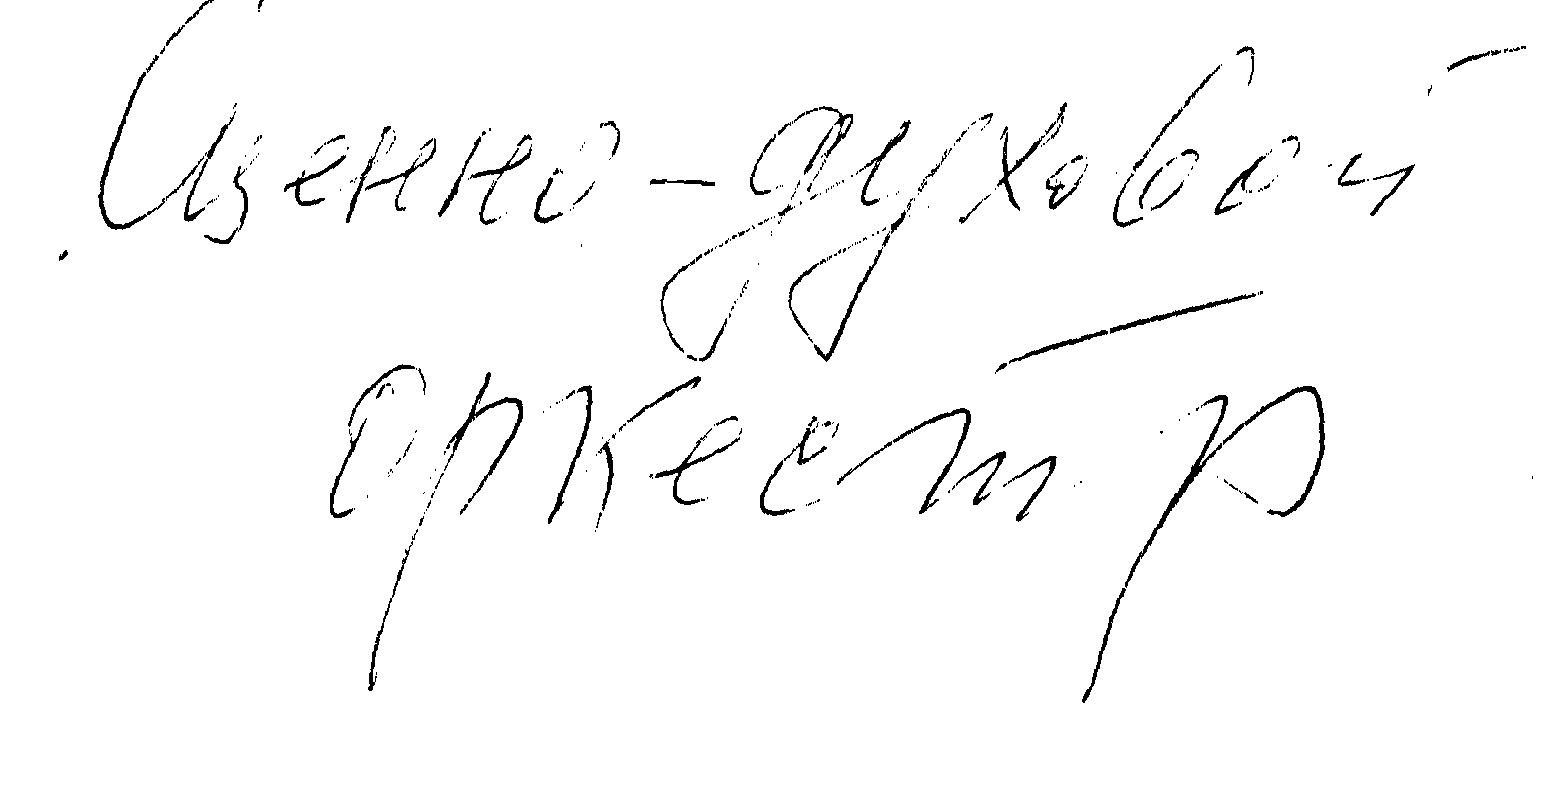 Сценно-духовой
оркестр